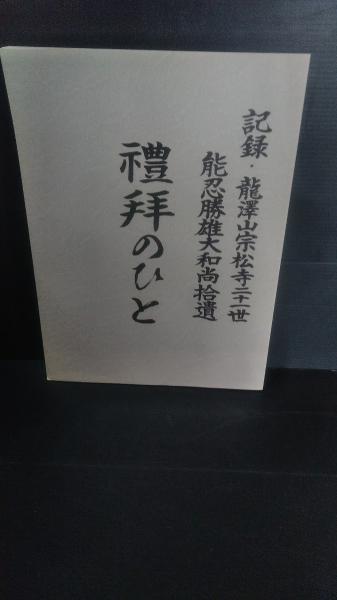 記録・龍澤山宗松寺二十一世
能忍勝雄大和尚拾遺
禮拜のひと